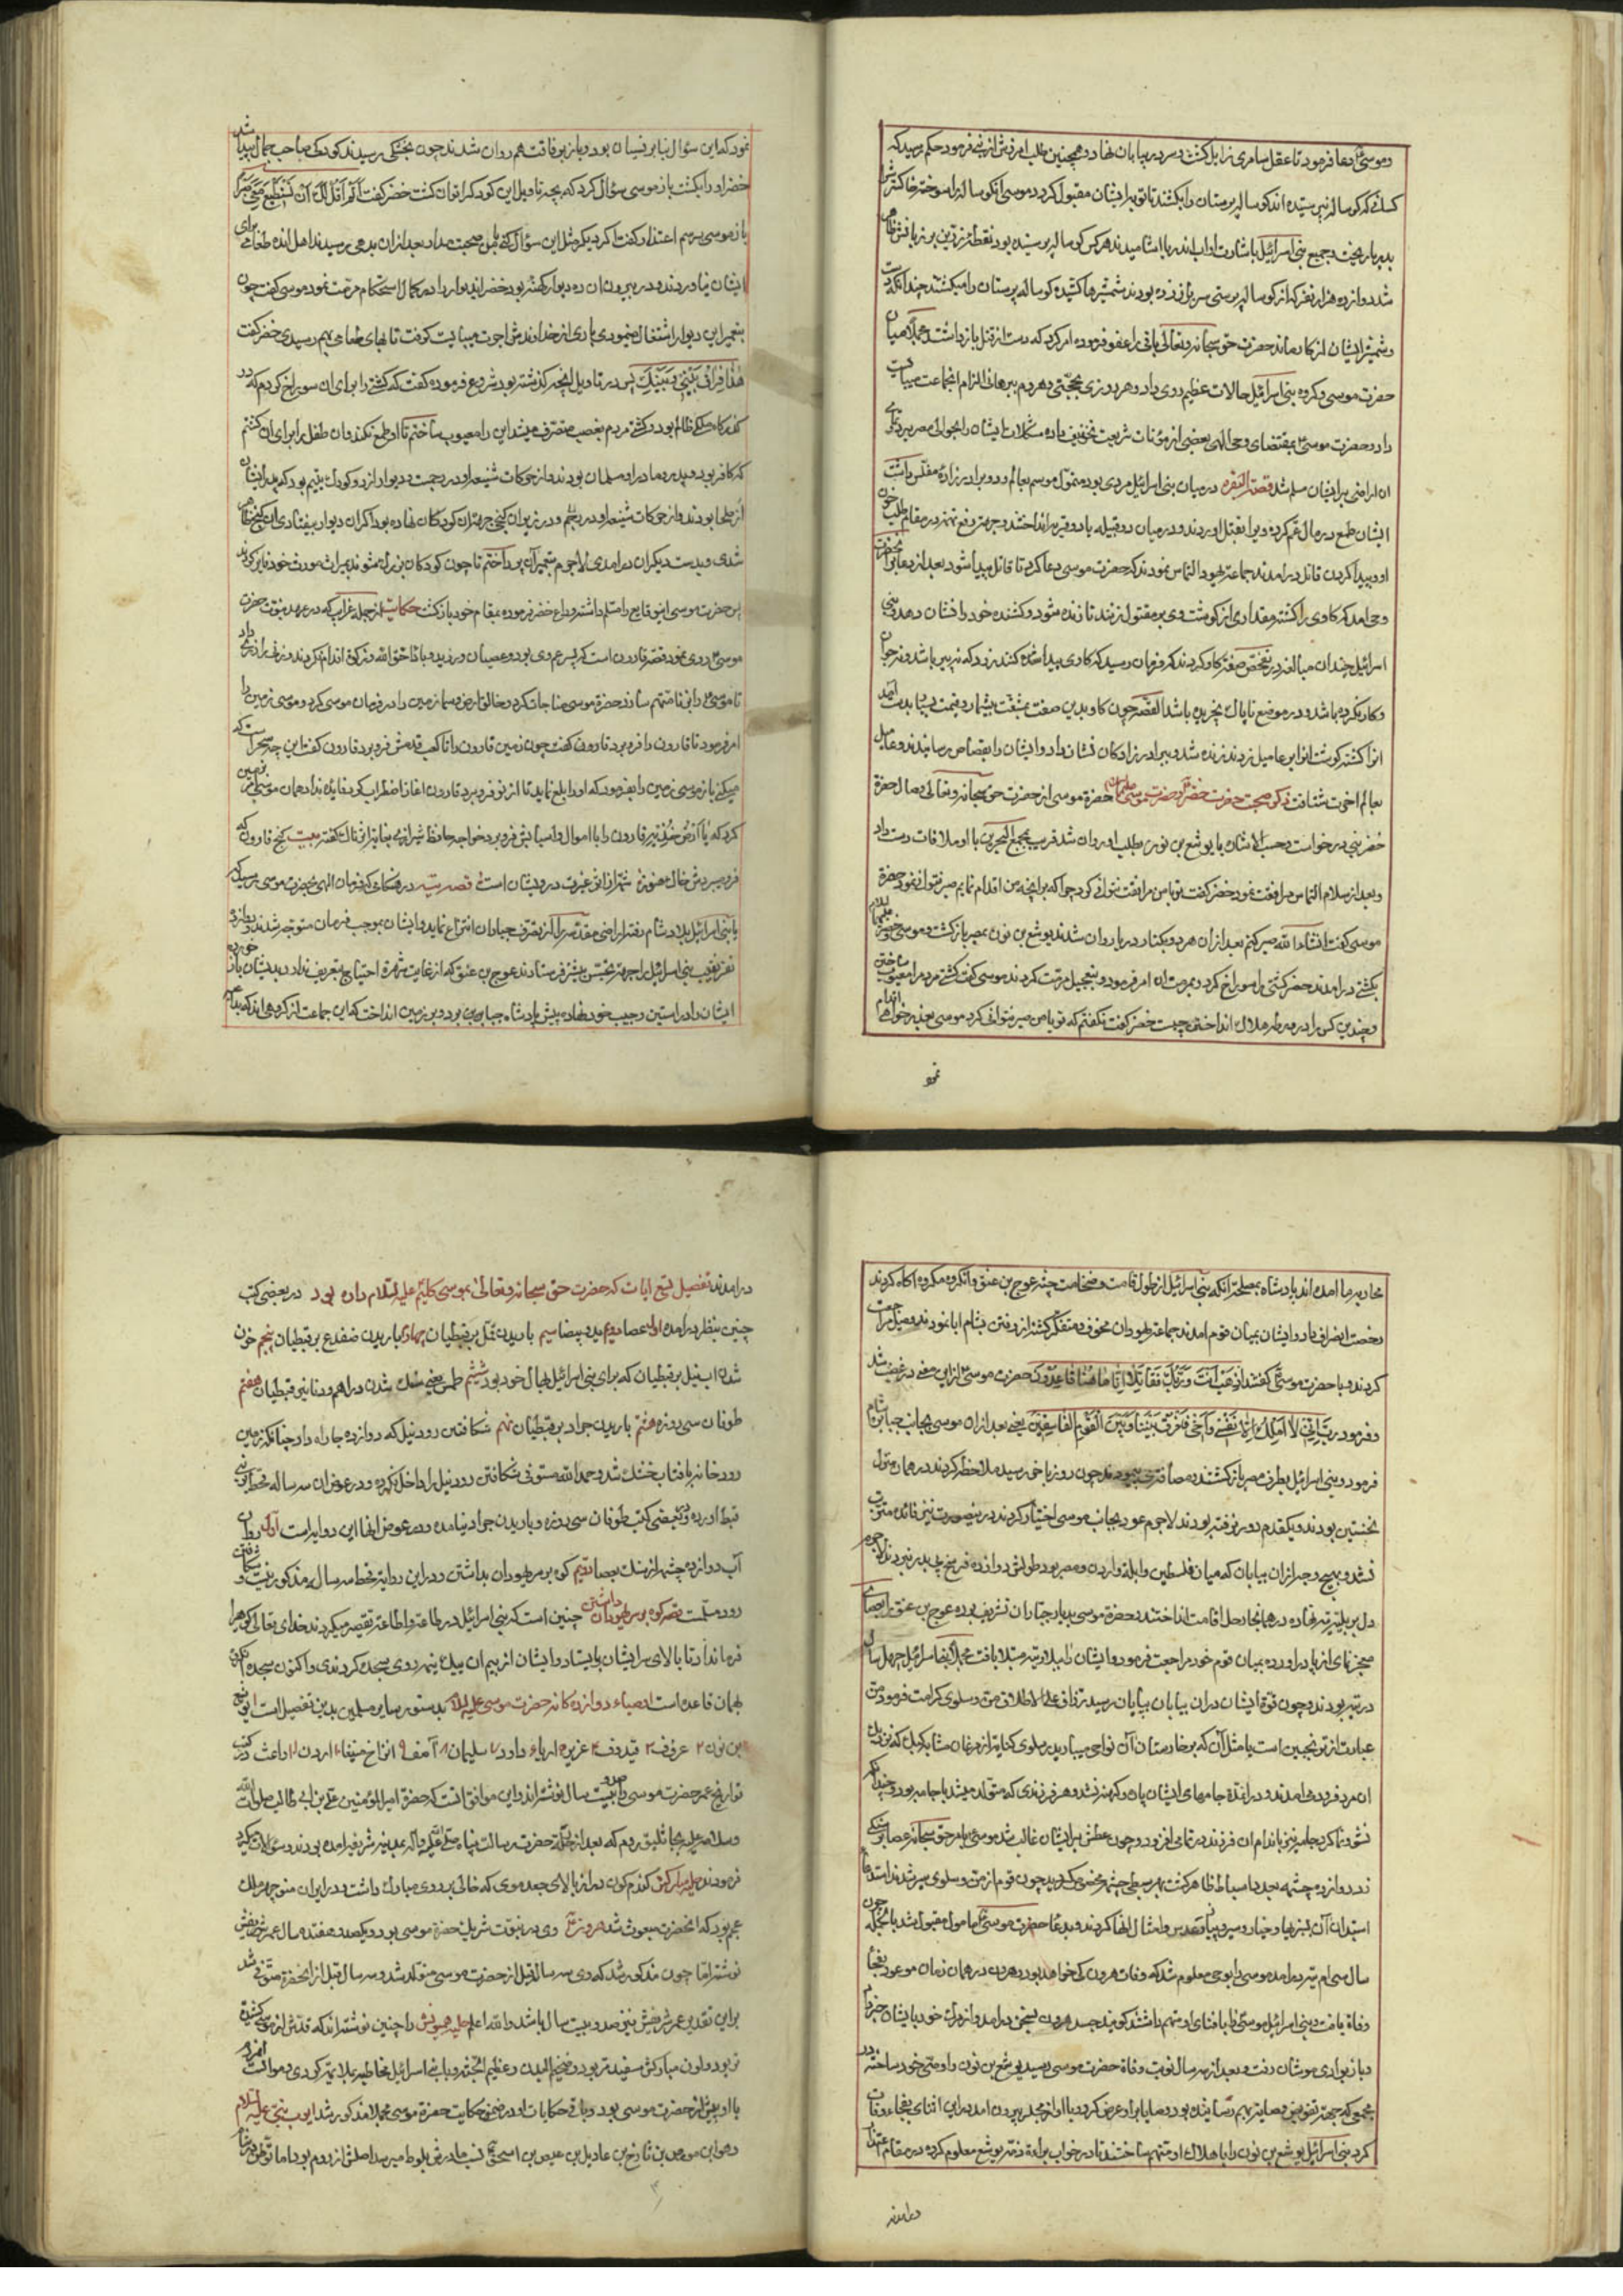 و موسی دعا فرمود تا عقل سامری زایل گشت و سر در بیابان نهاد و همچنین طلب امرزش از نبی فرمود حکم رسید که
کسانی که گوساله پرستیده اند گوساله پرستان را بکشند تا توبه ایشان مقبول گردد موسی آن گوساله را سوخته خاکستر
بدریا ریخت و جمیع بنی اسرائیل باشارت او اب اندریا اشامیدند هر کس گوساله پرستیده بود نقطه زرین بر
شد دوازده هزار نفر که از گوساله پرستی سر باز زده بودند شمشیرها کشیده گوساله پرستان را میکشتند چندانکه
و شمشیر ایشان از کار بماند حضرت حق سبحانه و تعالی باقی را عفو فرموده امر کرد که دست از قتل باز داشتند
حضرت موسی و گروه بنی اسرائیل حالات عظیم روی داد و هر روزی بحجتی و هر دم ببرهانی الزام انجماعت
داد و حضرت موسی بمقتضای وحی الهی بعضی از مؤنات شریعت تخفیف داده مشکلات ایشان را
ان اراضی بر ایشان مسلم شد قصة البقره در میان بنی اسرائیل مردی بود متمول موسم بعامیل و دو برادرزاده مفلس داشت
ایشان طمع در مال عم کرده ویرا بقتل اوردند و در میان دو قبیله یا دو قریه انداختند و جهت دفع تهمت در مقام طلب خون
او و پیدا کردن قاتل درامدند جماعت یهود التماس نمودند که حضرت موسی دعا کرد تا قاتل پیدا شود بعد از دعا
وحی امد که گاوی را کشته مقداری از گوشت وی بر مقتول زنند تا زنده شود و کشنده خود را نشان دهد بنی
اسرائیل چندان مبالغه در تفحص صفت گاو کردند که فرمان رسید که گاوی پیدا کنند زرد که نه پیر باشد و نه جوان
و کار نکرده باشد و در موضع ناپاک نچریده باشد القصه چون گاو بدین صفت بمشقت بیشمار و قیمت بسیار بدست امد
انرا کشته گوشت انرا بر عامیل زدند زنده شد و برادرزادگان نشان داد و ایشان را بقصاص رسانیدند و عامیل
بعالم اخرت شتافت ذکر صحبت حضرت خضر و حضرت موسی علیهما السلام حضرة موسی از حضرت حق سبحانه و تعالی وصال حضرة
خضر نبی درخواست و حسب الاشاره با یوشع بن نون بطلب او روان شد قریب بمجمع البحرین با او ملاقات دست داد
و بعد از سلام التماس مرافقت نمود خضر گفت تو با من مرافقت نتوانی کرد چرا که بر آنچه من اقدام نمایم صبر نتوانی نمود حضرة
موسی گفت انشاء الله صبر کنم بعد از ان هر دو بکنار دریا روان شدند یوشع بن نون بمصر باز گشت و موسی و خضر علیهما السلام
بکشتی درامدند خضر کشتی را سوراخ کرد و بمرمت ان امر فرمود و بتعجیل مرمت کردند موسی گفت کشتی مردم را معیوب ساختن
و چندین کس را در ورطه هلاک انداختن چیست خضر گفت نگفتم که تو با من صبر نتوانی کرد موسی بعذر خواهی اقدام
نمو
نمود که این سؤال بنا بر نسیان بود و باز برفاقت هم روان شدند چون بخشکی رسیدند کودکی صاحب جمال پیدا شد
خضر او را بکشت باز موسی سؤال کرد که بچه تاویل این کودک را توان کشت خضر گفت الم اقل لک ان تستطیع معی صبرا
باز موسی برسم اعتذار گفت اگر دیگر مثل این سؤال کنم با من صحبت مدار بعد از ان بدهی رسیدند اهل انده طعامی برای
ایشان نیاوردند و در بیرون ان ده دیوار کهنه بود خضر اندیوار را در کمال استحکام مرمت نمود موسی گفت چون
بتعمیر این دیوار اشتغال مینمودی باری از خداوندش اجرت میبایست گرفت تا بهای طعامی بهم رسیدی خضر گفت
هذا فراق بینی و بینک پس در تاویل آنچه گذشته بود شروع فرموده گفت که کشتی را برای ان سوراخ کردم که در
گذرگاه ملکی ظالم بود و کشتی مردم بغصب متصرف میشد این را معیوب ساختم تا او طمع نکند و ان طفل را برای ان کشتم
که کافر بود و پدر و مادر او مسلمان بودند و از حرکات شنیعه او در زحمت و دیوار از دو کودک یتیم بود که پدر ایشان
از صلحا بودند و در زیر ان گنجی جهة ان کودکان نهاده بود اگر ان دیوار بیفتادی ان گنج ظاهر
شدی و بدست دیگران درامدی لاجرم بتعمیر آن پرداختم تا چون کودکان بزرک شوند بمیراث مورث خود فایز گردند
پس حضرت موسی این وقایع را مسلم داشته وداع خضر فرموده بمقام خود باز گشت حکایت از جمله غرایب که در عهد نبوت حضرت
موسی روی نمود قصه قارون است که پسر عم وی بود و عصیان ورزید و باداء حق الله و زکوة اقدام نکرد و زنی را زر داد
تا موسی را بزنا متهم سازد حضرة موسی مناجات کرد و خالق ارض و سما زمین را در فرمان موسی کرد و موسی زمین را
امر فرمود تا قارون را فرو برد قارون گفت چون زمین قارون را تا کعب قدمش فرو برد قارون گفت این چه سحر است که
میکنی باز موسی زمین را بفرمود که او را بلع نماید تا زانو فرو برد قارون اغاز اضطراب کرد فایده نداد همان موسی زمین
کرد که یا ارض خذیه قارون را با اموال و اسبابش فرو برد خواجه حافظ شیرازی بنابران قال گفته بیت گنج قارون که
فرو میرود از قهر هنوز شمه از ان غیرت درویشان است قصه تیه در هنگامی که فرمان الهی بحضرت موسی رسید که
با بنی اسرائیل ببلاد شام رفته اراضی مقدسه را از تصرف جباران انتزاع نماید و ایشان بموجب فرمان متوجه شدند و دوازده
نفر نقیب بنی اسرائیل را جهة تجسس پیشتر فرستادند عوج بن عنق که از غایت شهرة احتیاج بتعریف ندارد بدیشان باز خورده
ایشان را در استین و جیب خود نهاده پیش پادشاه جباران برد و بر زمین انداخت که این جماعت از گروهی اند که بدم
محاربه ما امده اند پادشاه بمصلحة انکه بنی اسرائیل از طول قامت و ضخامت جثه عوج بن عنق و انگروه مکروه اگاه گردند
رخصت انصراف داد و ایشان بمیان قوم امدند جماعة یهودان مخوف و متفکر گشته از رفتن بشام ابا نمودند و میل مراجعت
کردند و با حضرت موسی گفتند اذهب انت و ربک فقاتلا انا هاهنا قاعدون حضرت موسی از این معنی در غضب شد
و فرمود رب انی لا املک الا نفسی و اخی فافرق بیننا و بین القوم الفاسقین یعنی بعد از ان موسی بجانب جباران شام
فرمود و بنی اسرائیل بطرف مصر باز گشتند و مسافتی پیمودند چون روز باخر رسید ملاحظه کردند در همان منزل
نخستین بودند و یکقدم دور نرفته بودند لاجرم عود بجانب موسی اختیار کردند درینصورت نیز فائده مترتب
نشد و بهیچ وجه از ان بیابان که میان فلسطین و ایله و اردن و مصر بود طولش دوازده فرسخ پی بدر نبردند لاجرم
دل بر بلیه تیه نهاده در همانجا رحل اقامت انداختند حضرة موسی بدیار جباران تشریف برده عوج بن عنق را بعصای
معجز نمای از پا در اورده بمیان قوم خود مراجعت فرمود و ایشان را ببلای تیه مبتلا یافت مجملا بنی اسرائیل چهل سال
در تیه بودند و چون قوة ایشان دران بیابان بپایان رسید رزاق علی الاطلاق من و سلوی کرامت فرمود من
عبارت از ترنجبین است یا مثل آن که بر خارستان آن نواحی میبارید و سلوی کنایه از مرغان مشابه کبک که نزدیک
ان مرد فرود می امدند و در انمدة جامهای ایشان پاره و کهنه نشد و هر فرزندی که متولد میشد با جامه بود و چندانکه
نشو و نما کرد جامه نیز باندام ان فرزند در تمامی افزود و چون عطش بر ایشان غالب شد موسی بامر حق سبحانه عصا بر سنگی
زد دوازده چشمه بعدد اسباط ظاهر گشت هر سبطی بچشمه مخصوص گردید چون قوم از من و سلوی سیر شدند استدعا
استبدال آن ببصلها و خیار و سیر و پیاز و عدس و امثال انها کردند و بدعا حضرت موسی مامول مقبول شد بالجمله چون
سال سی ام تیه درامد موسی را بوحی معلوم شد که وفات هرون کی خواهد بود و هرون در همان زمان موعود بفجا
وفاة یافت و بنی اسرائیل موسی را بافنای او متهم داشتند گویند جسد هرون بسخن درامد و از مرک خود بایشان خبر داد
و باز بوادی موشان رفت و بعد از سه سال نوبت وفاة حضرت موسی رسید یوشع بن نون را وصی خود ساخته در
مجمعی که جهة تفویض وصایت بهم رسانیده بود وصایا بر او عرض کرد و با او از مجلس بیرون امد در این اثنای بفجاء وفات
کرد بنی اسرائیل یوشع بن نون را بهلاک او متهم ساختند تا در خواب براءة ذمت یوشع معلوم کرده در مقام اعتذار
درامدند
درامدند تفصیل تسع ایات که حضرت حق سبحانه و تعالی بموسی کلیم علیه السلام داده بود در بعضی کتب
چنین بنظر درامده اول عصا دویم ید بیضا سیم باریدن قمل بر قبطیان چهارم باریدن ضفدع بر قبطیان پنجم خون
شدن اب نیل بر قبطیان که برای بنی اسرائیل بحال خود بود ششم طمس یعنی سنک شدن دراهم و دنانیر قبطیان هفتم
طوفان سی روزه هشتم باریدن جراد بر قبطیان نهم شکافتن رود نیل که دوازده جا راه داد چنانکه زمین
رودخانه بافتاب خشک شد و حمد الله مستوفی شکافتن رود نیل را داخل نکرده و در عوض ان سه ساله قحط بر
قبط اورده و در بعضی کتب طوفان سی روزه و باریدن جراد نیامده و در عوض انها این روایة است اول روان
آب دوازده چشمه از سنک بعصا دویم کوه بر سر یهودان بداشتن و در این روایة قحط سه ساله مذکور نیست و شکافتن
رود مسلمست قصه کوه بر سر یهودان داشتن چنین است که بنی اسرائیل در طاعة و اطاعة تقصیر میکردند خدای تعالی کوهرا
فرمان داد تا بالای سر ایشان بایستاد و ایشان از بیم ان بیک نیمه روی سجده کردندی و اکنون سجده
بهمان قاعده است اوصیاء دوازده گانه حضرت موسی علیه السلام بدستور سایر مسلمین بدین تفصیل است یوشع
بن نون ۲ عروف ۳ قیدوف ۴ عزیر ۵ اریا ۶ داود ۷ سلیمان ۸ آصف ۹ اتراخ منیقا ۱۰ اردن ۱۱ واعث ۱۲ در کتب
تواریخ عمر حضرت موسی را صد و بیست سال نوشته اند و این موافق انست که حضرة امیر المؤمنین علی بن ابی طالب صلوات الله
وسلامه علیه بجاثلیق روم که بعد از رحلة حضرت رسالت پناه صلی الله علیه و آله بمدینه شریفه امده بودند و سؤالات میکرد
فرمودند حلیه مبارکش گندم گون دراز بالای جعد موی که خالی بر روی مبارک داشت و در ایران منوچهر ملک
عجم بود که انحضرت مبعوث شد هرون وی در نبوت شریک حضرة موسی بود و یکصد و هفده سال عمر شریفش
نوشته اما چون مذکور شد که وی سه سال قبل از حضرت موسی متولد شد و سه سال قبل از انحضرة متوفی شد
براین تقدیر عمر شریفش نیز صد و بیست سال باشد والله اعلم حلیه همیونش را چنین نوشته اند که قدش از موسی کشیده
تر بود و لون مبارکش سفیدتر بود و ضخیم البدن و عظیم الجثه و با بنی اسرائیل مخاطبه بملایمت کردی و موانست امرد
با او بیش از حضرت موسی بود و باقی حکایات او در ضمن حکایت حضرة موسی مجملا مذکور شد ایوب نبی علیه السلام
و هو ابن موص بن تارخ بن عادیل بن عیص بن اسحق نسب مادرش بلوط میرسد اصلش از روم بود اما توطن در